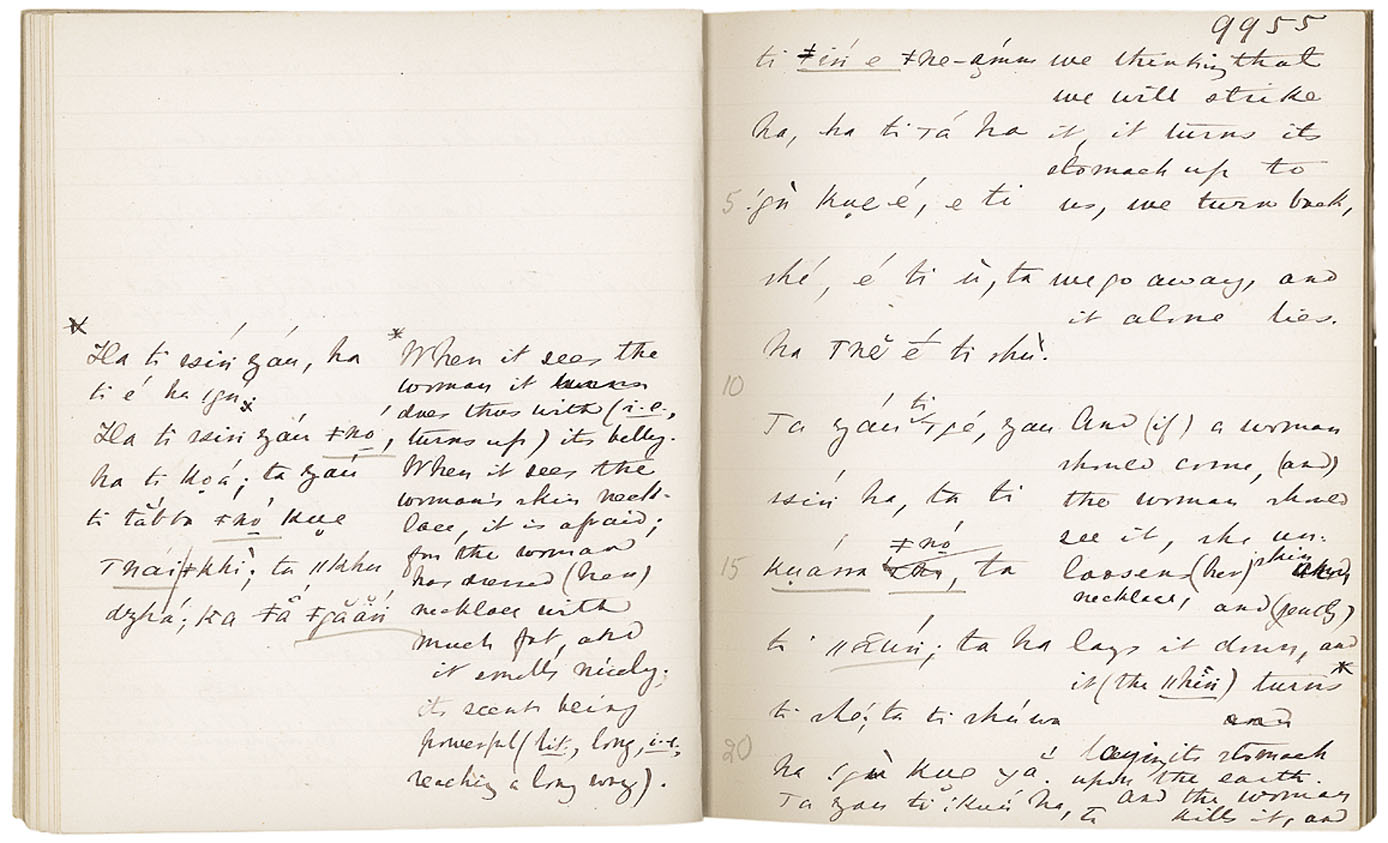 Ha ti ssín ẓáu, ha
ti é ha ǃgù.
Ha ti ssín ẓáu ǂnó,
ha ti kọá; ta ẓáu
ti tăbba ǂnó kụe
ta ǁkhu
When it sees the
woman it
does thus with (i.e.,
turns up) its belly.
When it sees the
woman's skin neck-
lace, it is afraid;
for the woman
has dressed (her)
necklace with
much fat, and
it smells nicely;
its scent being
powerful (lit., long, i.e.,
reaching a long way).
9955
ti
we thinking that
we will strike
ha, ha ti ha
it, it turns its
stomach up to
5
ǃgù kụe é, e ti
us, we turn back,
shé, é ti ù, ta
we go away, and
it alone lies.
ha é ti shù.
10
Ta ẓáu ti ẓau
And (if) a woman
should come, (and)
ssín ha, ta ti
the woman should
see it, she un-
ǂnó
15
ta
loosens (her) skin
necklace, and (gently)
ti ta ha
lays it down, and
it (the ) turns
ti shé; ta ti shúwa
and
20
laying its stomach
ha ǃgù kụe
upon the earth.
Ta ẓau ti ha, ti
and the woman
kills it, and